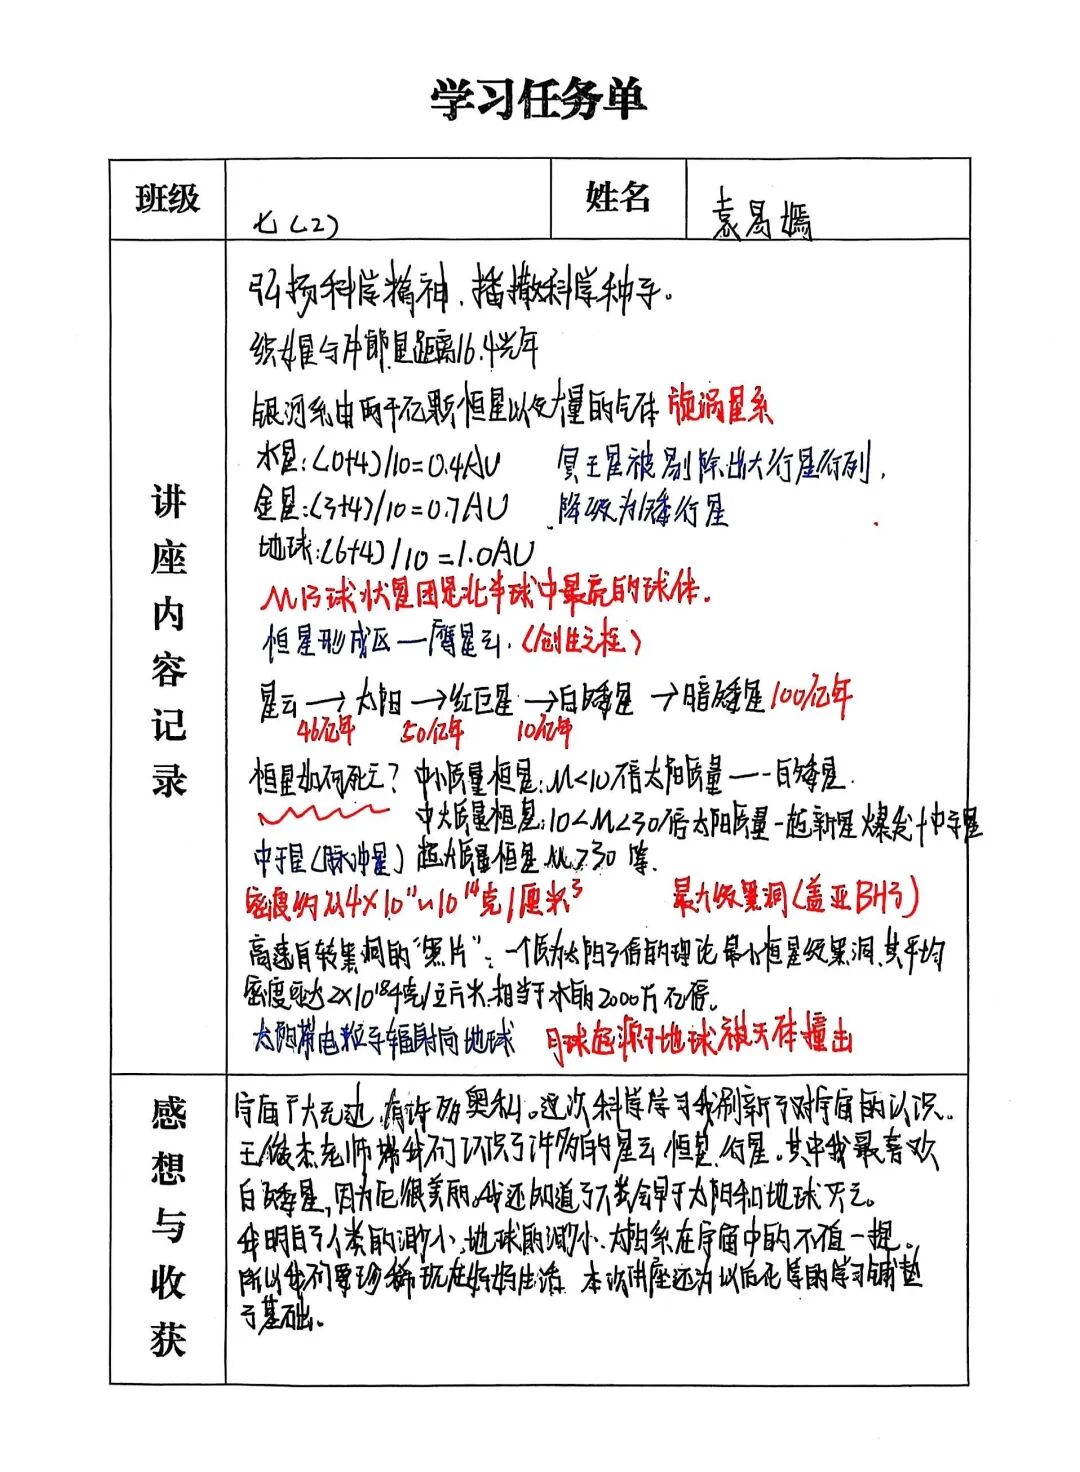 学习任务单
班级 七(2) 姓名 袁易嫣
讲座内容记录
弘扬科学精神,播撒科学种子。
织女星与牛郎星距离16.4光年
银河系由两千亿颗恒星以及大量的气体 旋涡星系
水星:(0+4)/10=0.4AU 冥王星被剔除出大行星行列,
金星:(3+4)/10=0.7AU 降级为矮行星
地球:(6+4)/10=1.0AU
M13球状星团是北半球中最亮的球体。
恒星形成区——鹰星云.(创生之柱)
星云→太阳→红巨星→白矮星→暗矮星 100亿年
46亿年 50亿年 10亿年
恒星如何死亡?中小质量恒星:M<10倍太阳质量——白矮星.
中大质量恒星:10<M<30倍太阳质量-超新星爆发+中子星
中子星(脉冲星) 超大质量恒星M>30 等.
密度约从4×10¹¹~10¹⁴克/厘米³ 最大级黑洞(盖亚BH3)
高速自转黑洞的“照片”:一个质为太阳3倍的理论最小恒星级黑洞,其平均
密度可达2×10¹⁸4克/立方米,相当于水的2000万亿倍。
太阳带电粒子辐射向地球 月球起源于地球被天体撞出
感想与收获
宇宙广大无边,有许多奥秘。这次科学学习我刷新了对宇宙的认识。
王俊杰老师带我们认识了许多的星云、恒星、行星。其中我最喜欢
白矮星,因为它很美丽。我还知道了人类会早于太阳和地球灭亡。
我明白了人类的渺小,地球的渺小、太阳系在宇宙中的不值一提。
所以我们要珍稀现在好好生活 本次讲座还为以后化学的学习铺垫
了基础。